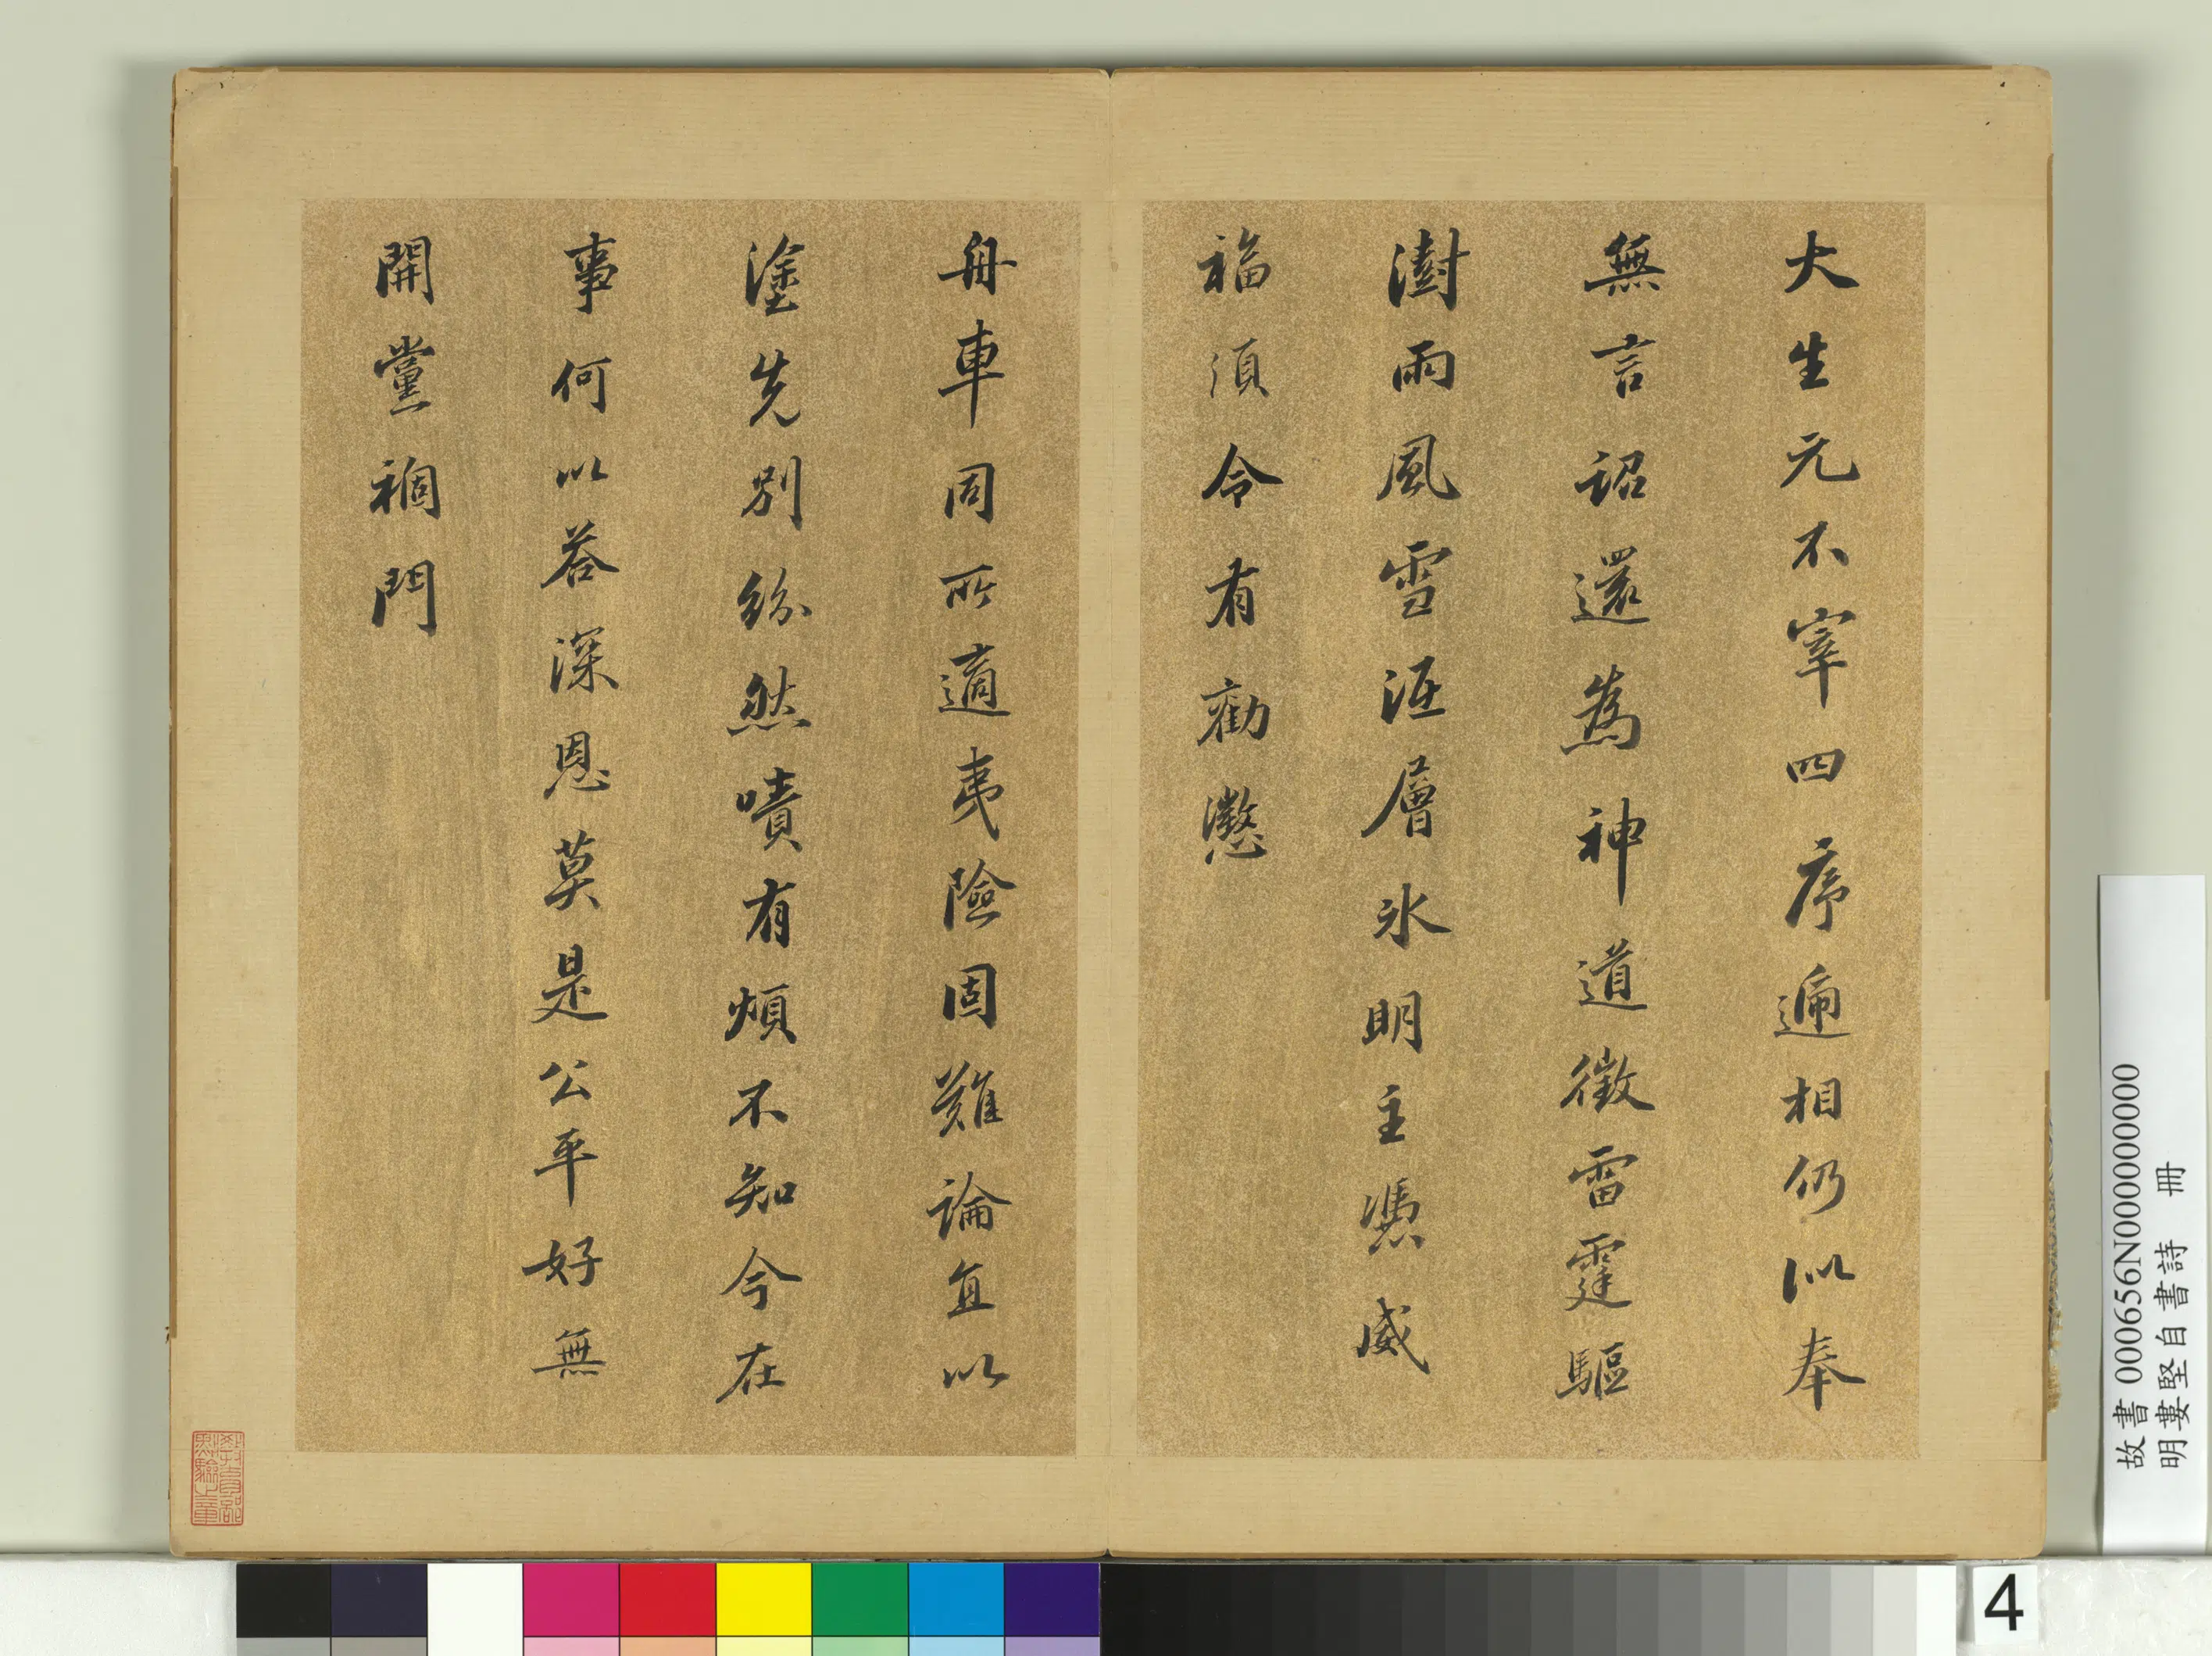 大生元不宰四序遞相仍似奉
無言詔還為神道徵雷霆驅
澍雨風雪沍層冰明主憑威
福須令有勸懲
舟車同所適夷險固難論直以
塗先別紛然嘖有煩不知今在
事何以答深恩莫是公平好無
開黨禍門
教育部
點驗之章
故書000656N000000000
明婁堅自書詩 冊
4